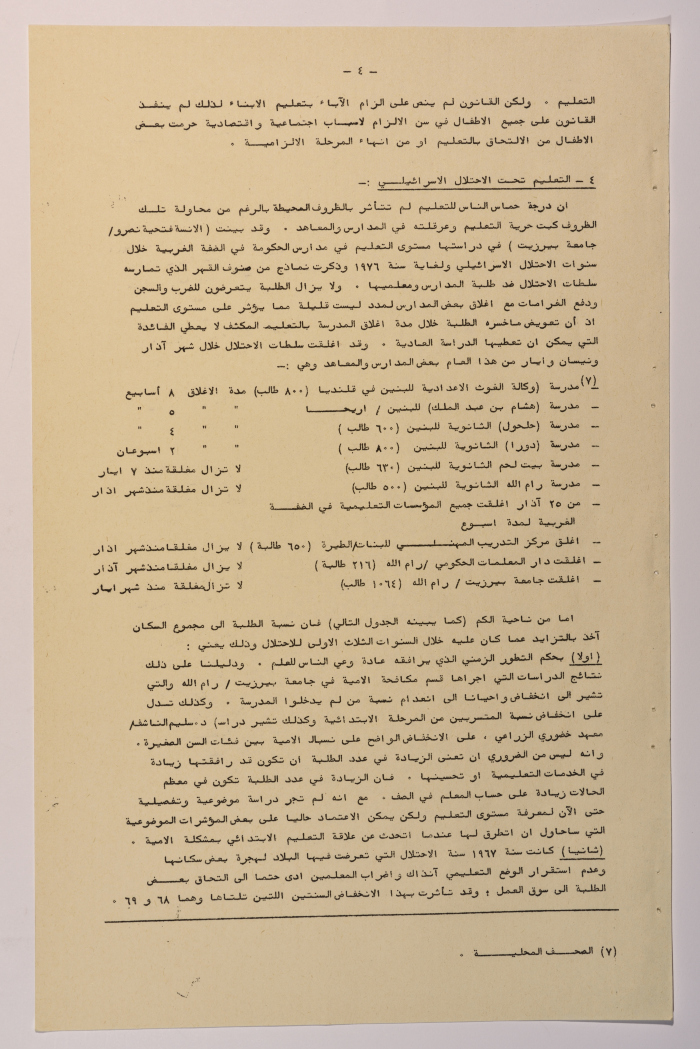 - ٤ -
التعليم ٠ ولكن القانون لم ينص على الزام الآباء بتعليم الابناء لذلك لم ينفذ
القانون على جميع الاطفال في سن الالزام لاسباب اجتماعية واقتصادية حرمت بعض
الاطفال من الالتحاق بالتعليم او من انهاء المرحلة الالزامية ٠
٤ - التعليم تحت الاحتلال الاسرائيلي :-
ان درجة حماس الناس للتعليم لم تتأثر بالظروف المحيطة بالرغم من محاولة تلك
الظروف كبت حرية التعليم وعرقلته في المدارس والمعاهد ٠ وقد بينت (الانسة فتحية نصرو/
جامعة بيرزيت) في دراستها مستوى التعليم في مدارس الحكومة في الضفة الغربية خلال
سنوات الاحتلال الاسرائيلي ولغاية سنة ١٩٧٦ وذكرت نماذج من صنوف القهر الذي تمارسه
سلطات الاحتلال ضد طلبة المدارس ومعلميها ٠ ولا يزال الطلبة يتعرضون للضرب والسجن
ودفع الغرامات مع اغلاق بعض المدارس لمدد ليست قليلة مما يؤثر على مستوى التعليم
اذ أن تعويض ماخسره الطلبة خلال مدة اغلاق المدرسة بالتعليم المكثف لا يعطي الفائدة
التي يمكن ان تعطيها الدراسة العادية ٠ وقد اغلقت سلطات الاحتلال خلال شهر آذار
ونيسان وايار من هذا العام بعض المدارس والمعاهد وهي :-
(٧) مدرسة (وكالة الغوث الاعدادية للبنين في قلنديا (٨٠٠ طالب) مدة الاغلاق ٨ أسابيع
- مدرسة (هشام بن عبد الملك) للبنين / اريحا " " ٥ "
- مدرسة (حلحول) الثانوية للبنين (٦٠٠ طالب) " " ٤ "
- مدرسة (دورا) الثانوية للبنين (٨٠٠ طالب) " " ٢ اسبوعان
- مدرسة بيت لحم الثانوية للبنين (٦٣٠ طالب) لا تزال مغلقة منذ ٧ ايار
- مدرسة رام الله الثانوية للبنين (٥٠٠ طالب) لا تزال مغلقة منذ شهر اذار
- من ٢٥ آذار اغلقت جميع المؤسسات التعليمية في الضفة
الغربية لمدة اسبوع
- اغلق مركز التدريب المهني للبنات/الطيرة (٦٥٠ طالبة) لا يزال مغلقا منذ شهر اذار
- اغلقت دار المعلمات الحكومي /رام الله (٢١٦ طالبة) لا يزال مغلقا منذ شهر آذار
- اغلقت جامعة بيرزيت / رام الله (١٠٦٤ طالب) لا تزال مغلقة منذ شهر ايار
اما من ناحية الكم (كما يبينه الجدول التالي) فان نسبة الطلبة الى مجموع السكان
آخذ بالتزايد عما كان عليه خلال السنوات الثلاث الاولى للاحتلال وذلك يعني :
(اولا) بحكم التطور الزمني الذي يرافقه عادة وعي الناس للعلم ٠ ودليلنا على ذلك
نتائج الدراسات التي اجراها قسم مكافحة الامية في جامعة بيرزيت / رام الله والتي
تشير الى انخفاض واحيانا الى انعدام نسبة من لم يدخلوا المدرسة ٠ وكذلك تدل
على انخفاض نسبة المتسربين من المرحلة الابتدائية وكذلك تشير دراسة) د٠سليم الناشف/
معهد خضوري الزراعي ، على الانخفاض الواضح على نسبة الامية بين فئات السن الصغيرة ٠
وانه ليس من الضروري ان تعنى الزيادة في عدد الطلبة ان تكون قد رافقتها زيادة
في الخدمات التعليمية او تحسينها ٠ فان الزيادة في عدد الطلبة تكون في معظم
الحالات زيادة على حساب المعلم في الصف ٠ مع انه لم تجر دراسة موضوعية وتفصيلية
حتى الآن لمعرفة مستوى التعليم ولكن يمكن الاعتماد حاليا على بعض المؤشرات الموضوعية
التي ساحاول ان اتطرق لها عندما اتحدث عن علاقة التعليم الابتدائي بمشكلة الامية ٠
(ثانيا) كانت سنة ١٩٦٧ سنة الاحتلال التي تعرضت فيها البلاد لهجرة بعض سكانها
وعدم استقرار الوضع التعليمي آنذاك واضراب المعلمين ادى حتما الى التحاق بعض
الطلبة الى سوق العمل ؛ وقد تأثرت بهذا الانخفاض السنتين اللتين تلتاها وهما ٦٨ و ٦٩ ٠
(٧) الصحف المحلية ٠